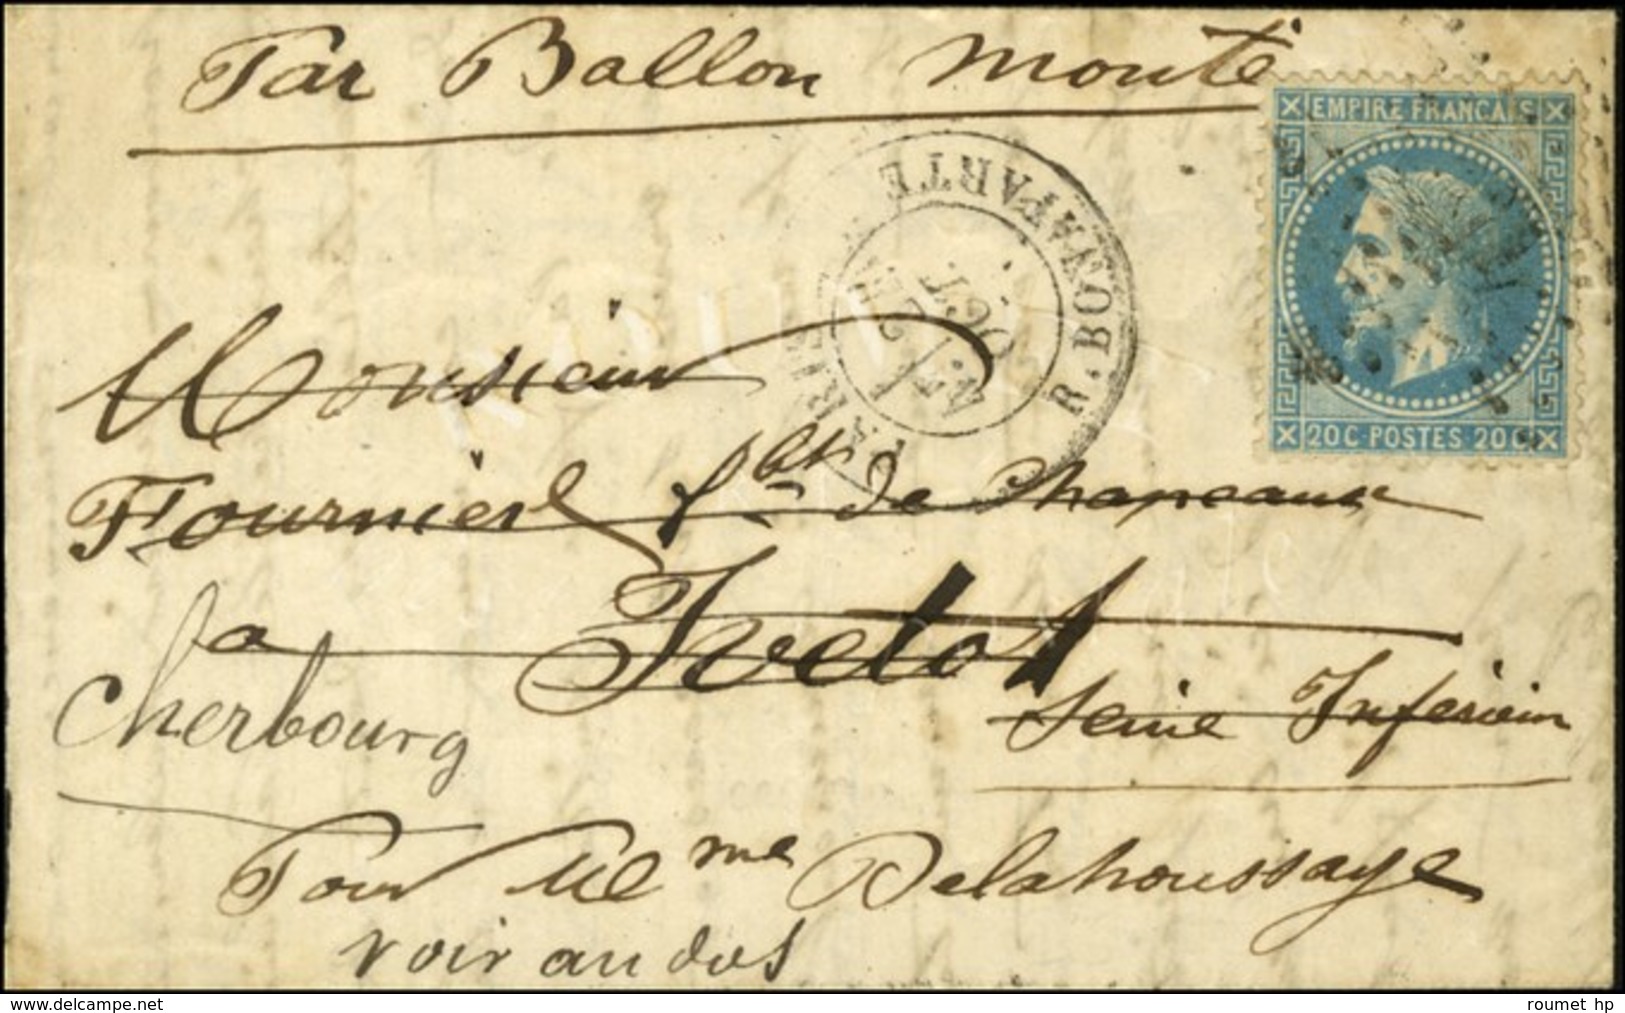 Par Ballon monté
EMPIRE FRANCAIS
20 C·POSTES 20 C
PARIS R. BONAPARTE
OCT.
Monsieur
Fournier fbt de Chapeaux
a Ivetot
Seine Inférieur
Cherbourg
Pour Me me Delahoussaye
voir au dos
www.delcampe.net
roumet hp